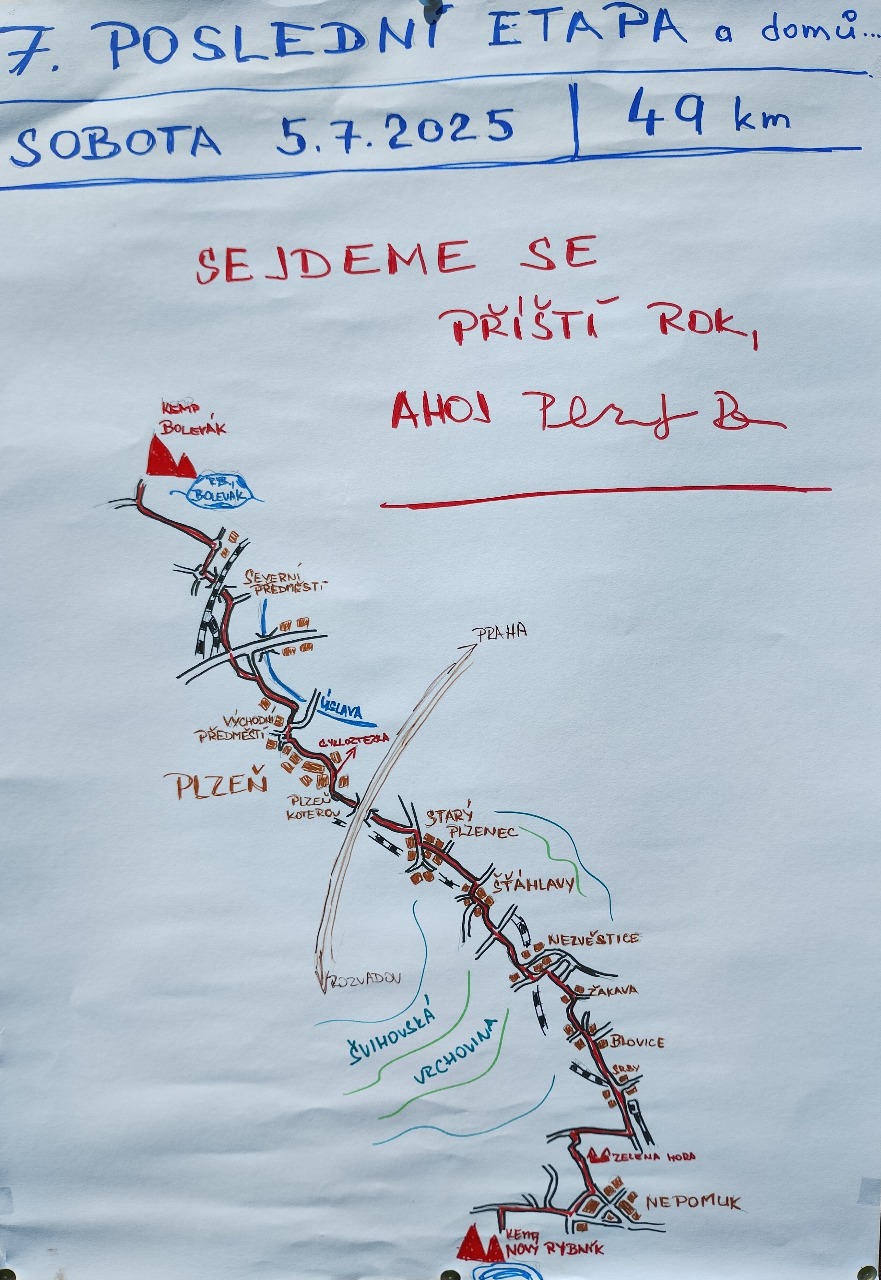 7. POSLEDNÍ ETAPA a domů...
SOBOTA 5.7.2025 | 49 km
SEJDEME SE
PŘÍŠTÍ ROK,
AHOJ
KEMP
BOLEVÁK
RB.
BOLEVÁK
SEVERNÍ
PŘEDMĚSTÍ
PRAHA
ÚSLAVA
VÝCHODNÍ
PŘEDMĚSTÍ
CYKLOSTEZKA
PLZEŇ
PLZEŇ
KOTEROV
STARÝ
PLZENEC
ŠŤÁHLAVY
NEZVĚSTICE
ROZVADOV
ŽÁKAVA
ŠVIHOVSKÁ
VRCHOVINA
BLOVICE
SRBY
ZELENÁ HORA
NEPOMUK
KEMP
NOVÝ RYBNÍK